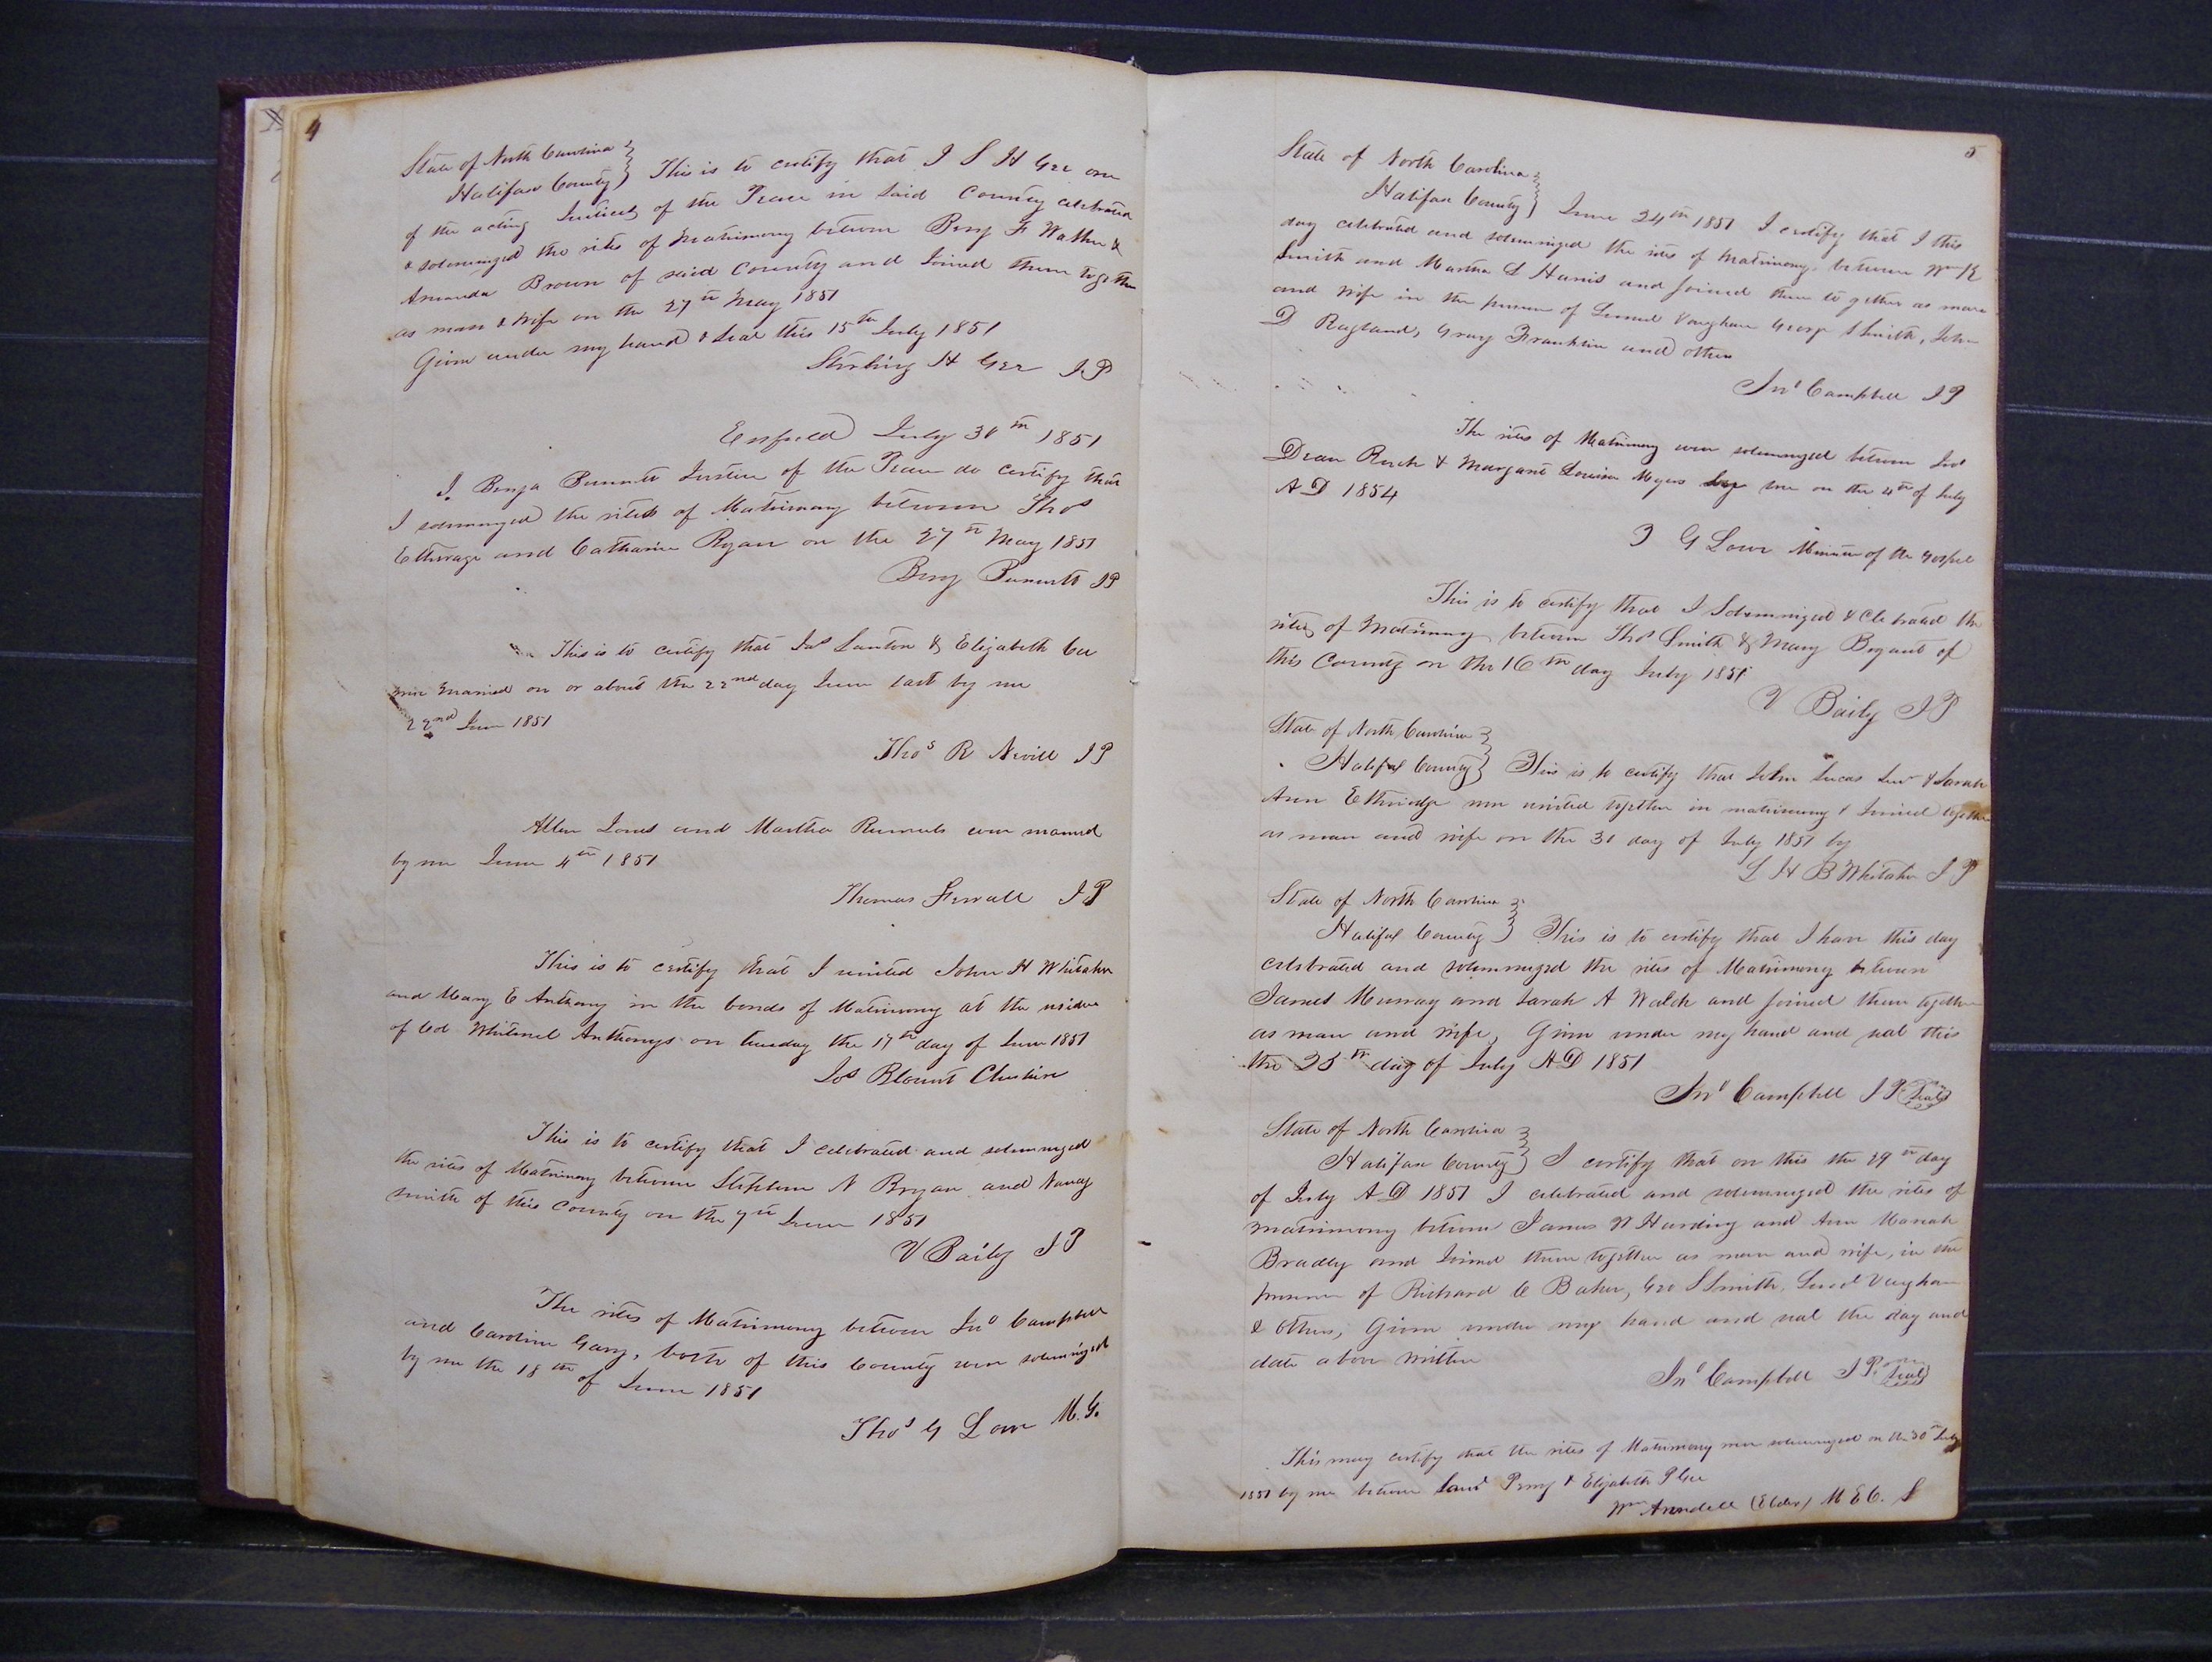 4
State of North Carolina
Halifax County } This is to certify that I S H Gee one
of the acting Justices of the Peace in said County celebrated
& solemnized the rites of Matrimony between Benj F
Amanda Brown of said County and Joined them together
as man & wife on the 27th May 1851
Given under my hand & seal this 15th July 1851
Sterling H Gee J.P
Enfield July 30th 1851
I. Benja Justice of the Peace do certify that
I solemnized the rites of Matrimony between Thos
Ethrage and Catharine Ryan on the 27th May 1851
Benj JP
This is to certify that Jas & Elizabeth
were married on or about the 22nd day June last by me
22nd June 1851
Thos R Nevill JP
Allen Jones and Martha were married
by me June 4th 1851
Thomas JP
This is to certify that I united John H Whitaker
and Mary E Anthony in the bonds of Matrimony at the
of Col Whitmel Anthonys on tuesday the 17th day of June 1851
Jos Blount Cheshire
This is to certify that I celebrated and solemnized
the rites of Matrimony between Stephen N Bryan and Nancy
Smith of this County on the 7th June 1851
V Baily JP
The rites of Matrimony between Jno Campbell
and Caroline Gary, both of this County were solemnized
by me the 18th of June 1851
Thos G Lowe M.G.
5
State of North Carolina
Halifax County } June 24th 1851 I certify that I this
day celebrated and solemnized the rites of Matrimony between Wm
Smith and Martha S Harris and Joined them together as man
and wife in the presence of Lemuel Vaughan George S Smith, John
D Ragland, Gray Franklin and others
Jno Campbell JP
The rites of Matrimony were solemnized between
Dean & Margaret Louisa Myers by me on the 4th of July
A D 1854
T G Lowe Minister of the Gospel
This is to certify that I Solemnized & Clebrated the
rites of Matrimony between Thos Smith & Mary Bryant of
this County on the 16th day July 1851
V Baily JP
State of North Carolina
Halifax County } This is to certify that John Lucas & Sarah
Ann Ethridge were united together in matrimony & Joined together
as man and wife on the 30 day of July 1851 by
L H B Whitaker JP
State of North Carolina
Halifax County } This is to certify that I have this day
celebrated and solemnized the rites of Matrimony between
James Murray and Sarah A Walch and Joined them together
as man and wife, Given under my hand and seal this
the 25th day of July A D 1851
Jno Campbell J.P. Seal
State of North Carolina
Halifax County } I certify that on this the 29th day
of July A D 1851 I celebrated and solemnized the rites of
matrimony between James W Harding and Ann Mariah
Bradly and Joined them together as man and wife, in the
presence of Richard C Baker, Geo S Smith, Vaughan
& others, Given under my hand and seal the day and
date above written
Jno Campbell J.P. Seal
This may certify that the rites of Matrimony were solemnized on the 30th July
1851 by me between Perry & Elizabeth P Gee
Wm Arendell (Elder) M E C. S